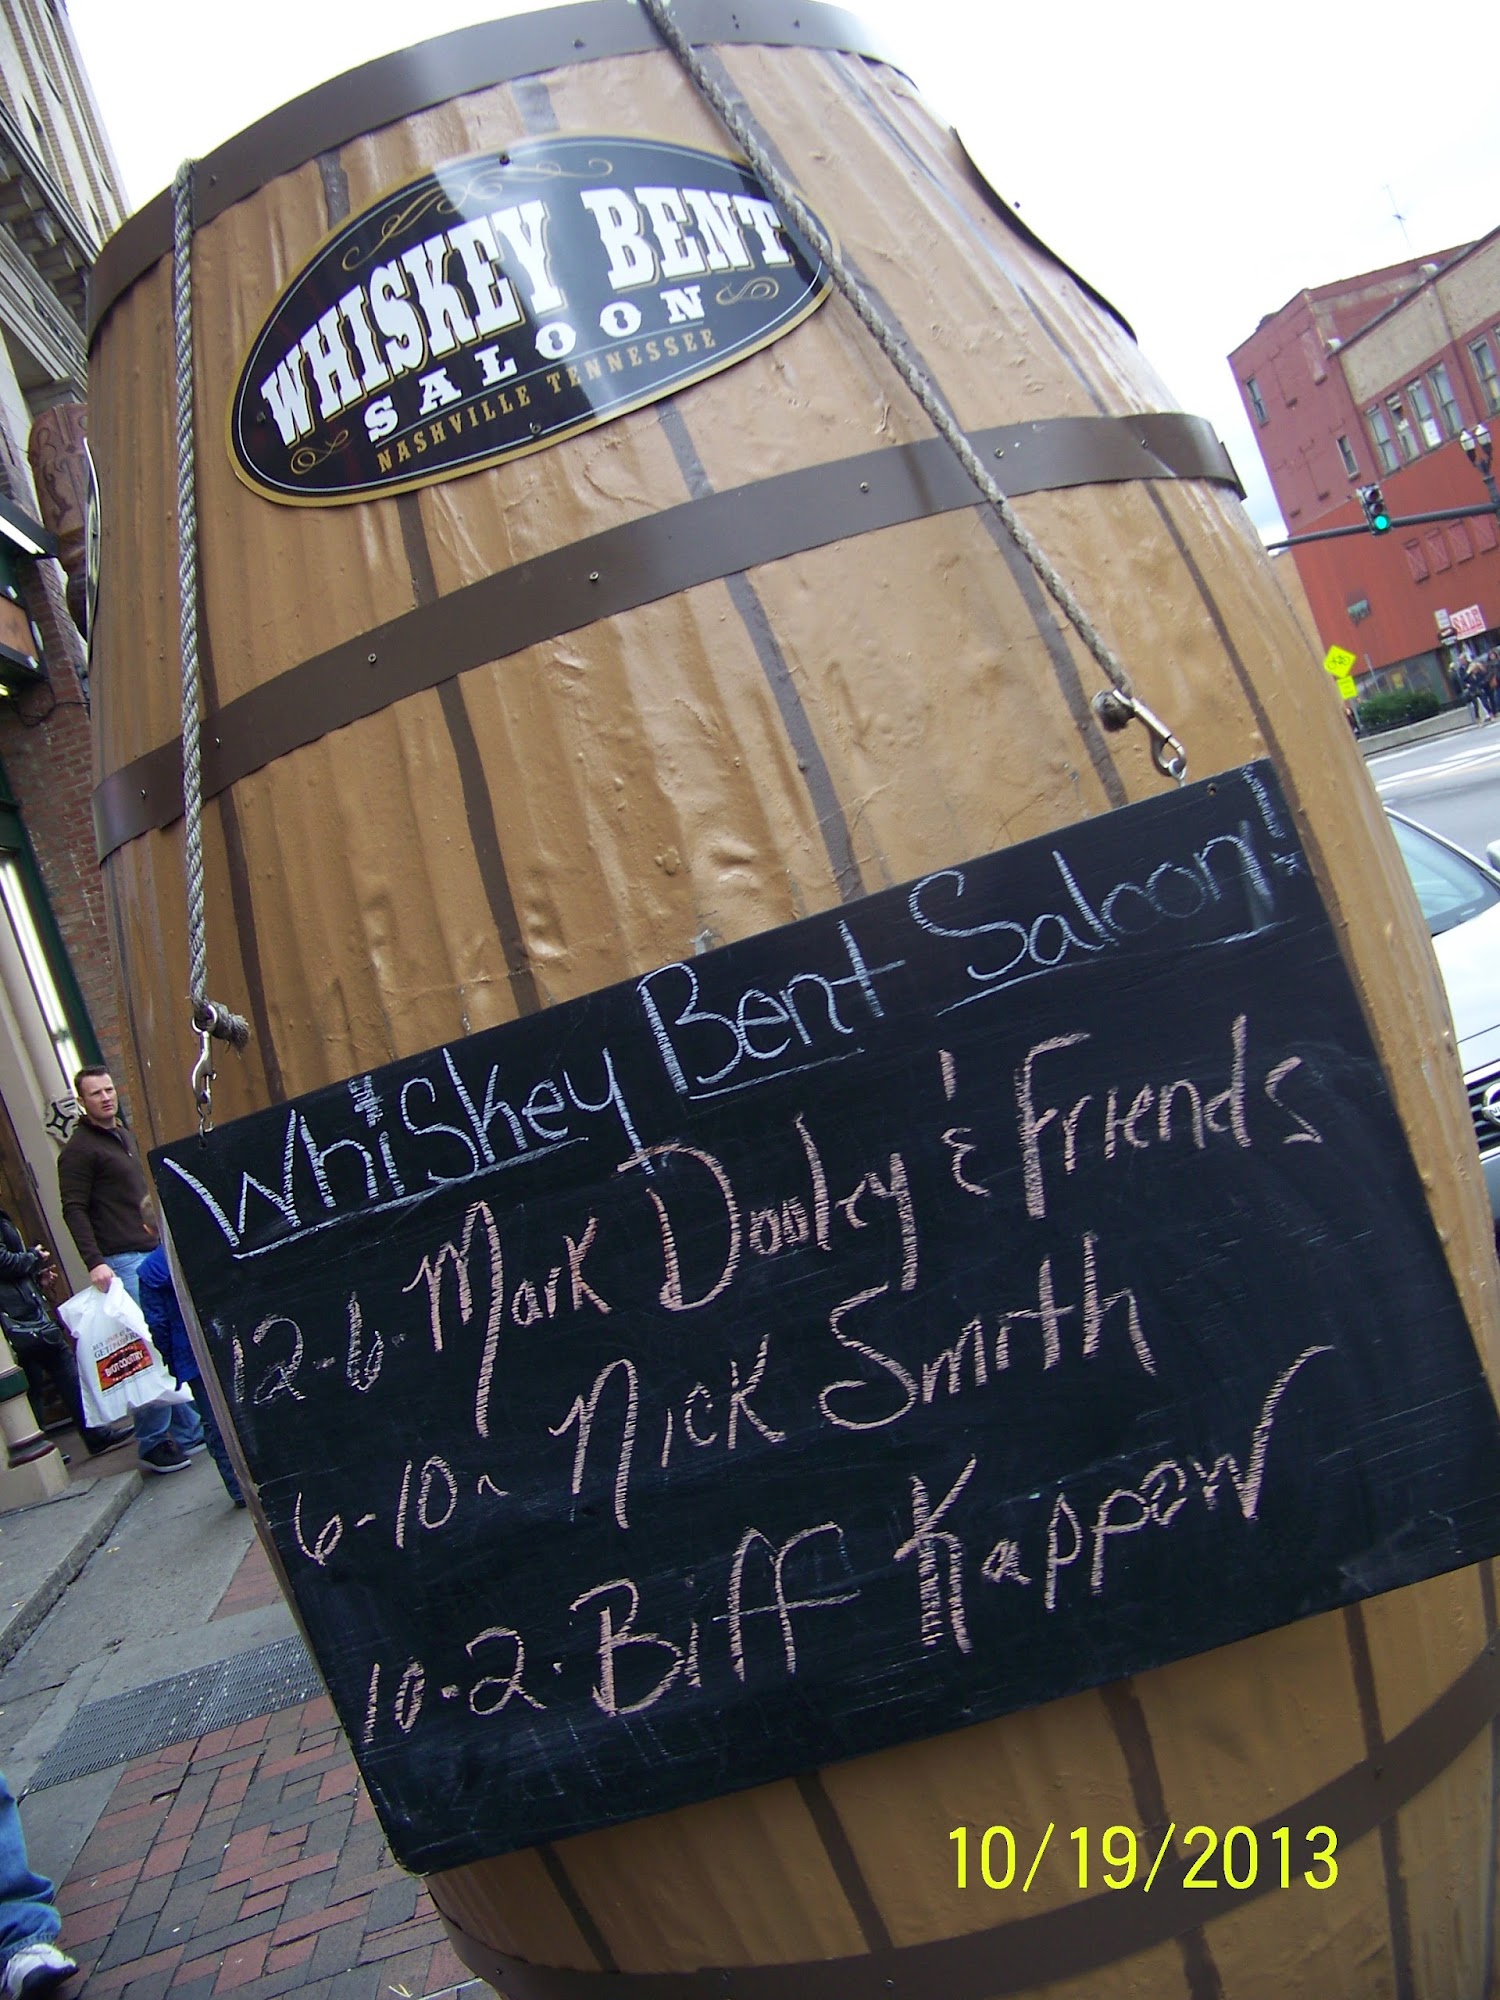 WHISKEY BENT
SALOON
NASHVILLE TENNESSEE
Whiskey Bent Saloon!
12-6- Mark Dooley & Friends
6-10~ Nick Smith
10-2. Biff Kappow
SALE
BOOT COUNTRY
10/19/2013